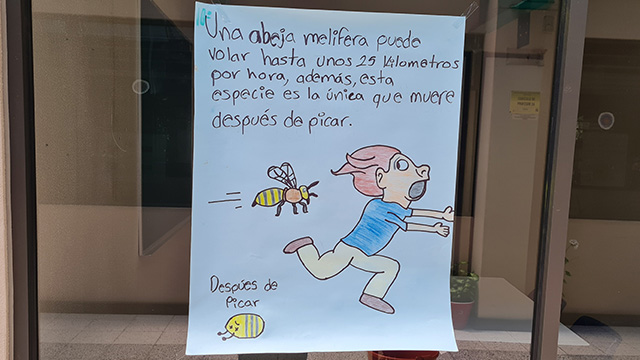 Una abeja melifera puede
volar hasta unos 25 kilometros
por hora, además, esta
especie es la única que muere
después de picar.
Despúes de
Picar